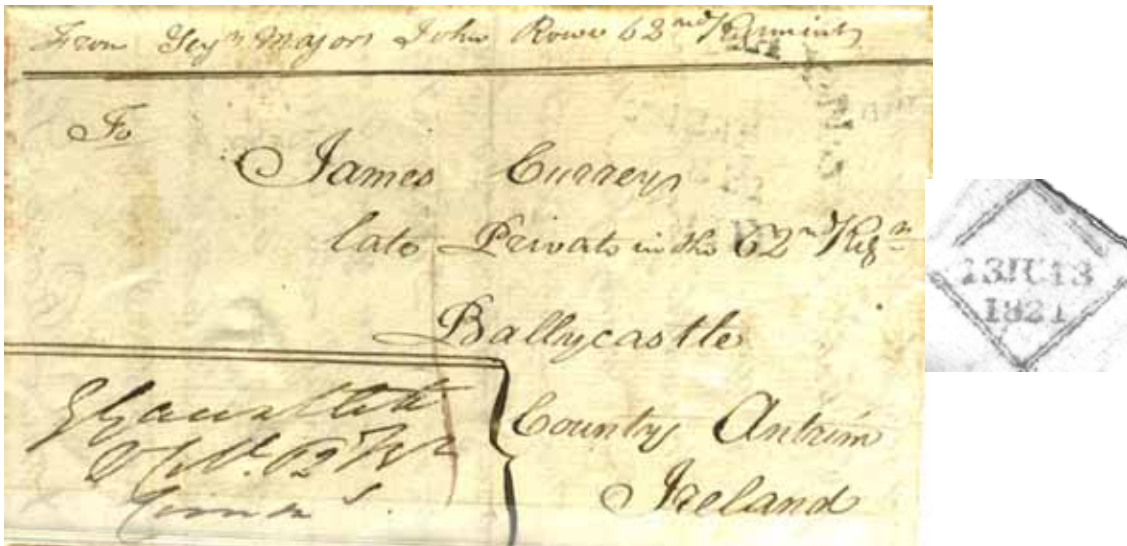 From Serjn Major John Rowe 62nd Regiment
To
James Currey
late Private in the 62nd Regn
Ballycastle
County Antrim
Ireland
62
13JU13
1821